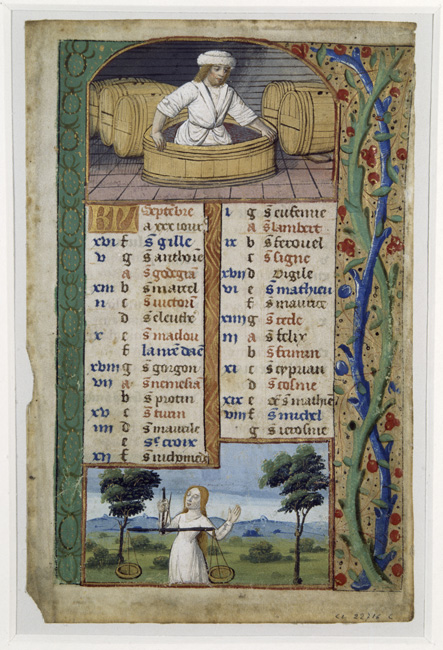 Septēbre
a xxx iours
xvi f s̄ gille
v g s̄ anthoine
a s̄ georgia
xiii b s̄ marcel
ii c s̄ victorī
d s̄ eleuthe
x e s̄ madou
f la nr̄e dāe
xviii g s̄ gorgon
vii a s̄ nemesia
b s̄ protin
xv c s̄
iiii d s̄ maurile
e sᵗᵉ croix
xii f s̄
i g s̄ eufemie
a s̄ lambert
ix b s̄ ferouel
c s̄ signe
xvii d Vigile
vi e s̄ mathieu
f s̄ maurice
xiiii g s̄ tecle
iii a s̄ felix
b s̄ firmin
xi c s̄ cyprian
d s̄ cosme
xix e s̄ mathieu
viii f s̄ michel
g s̄ ierosme